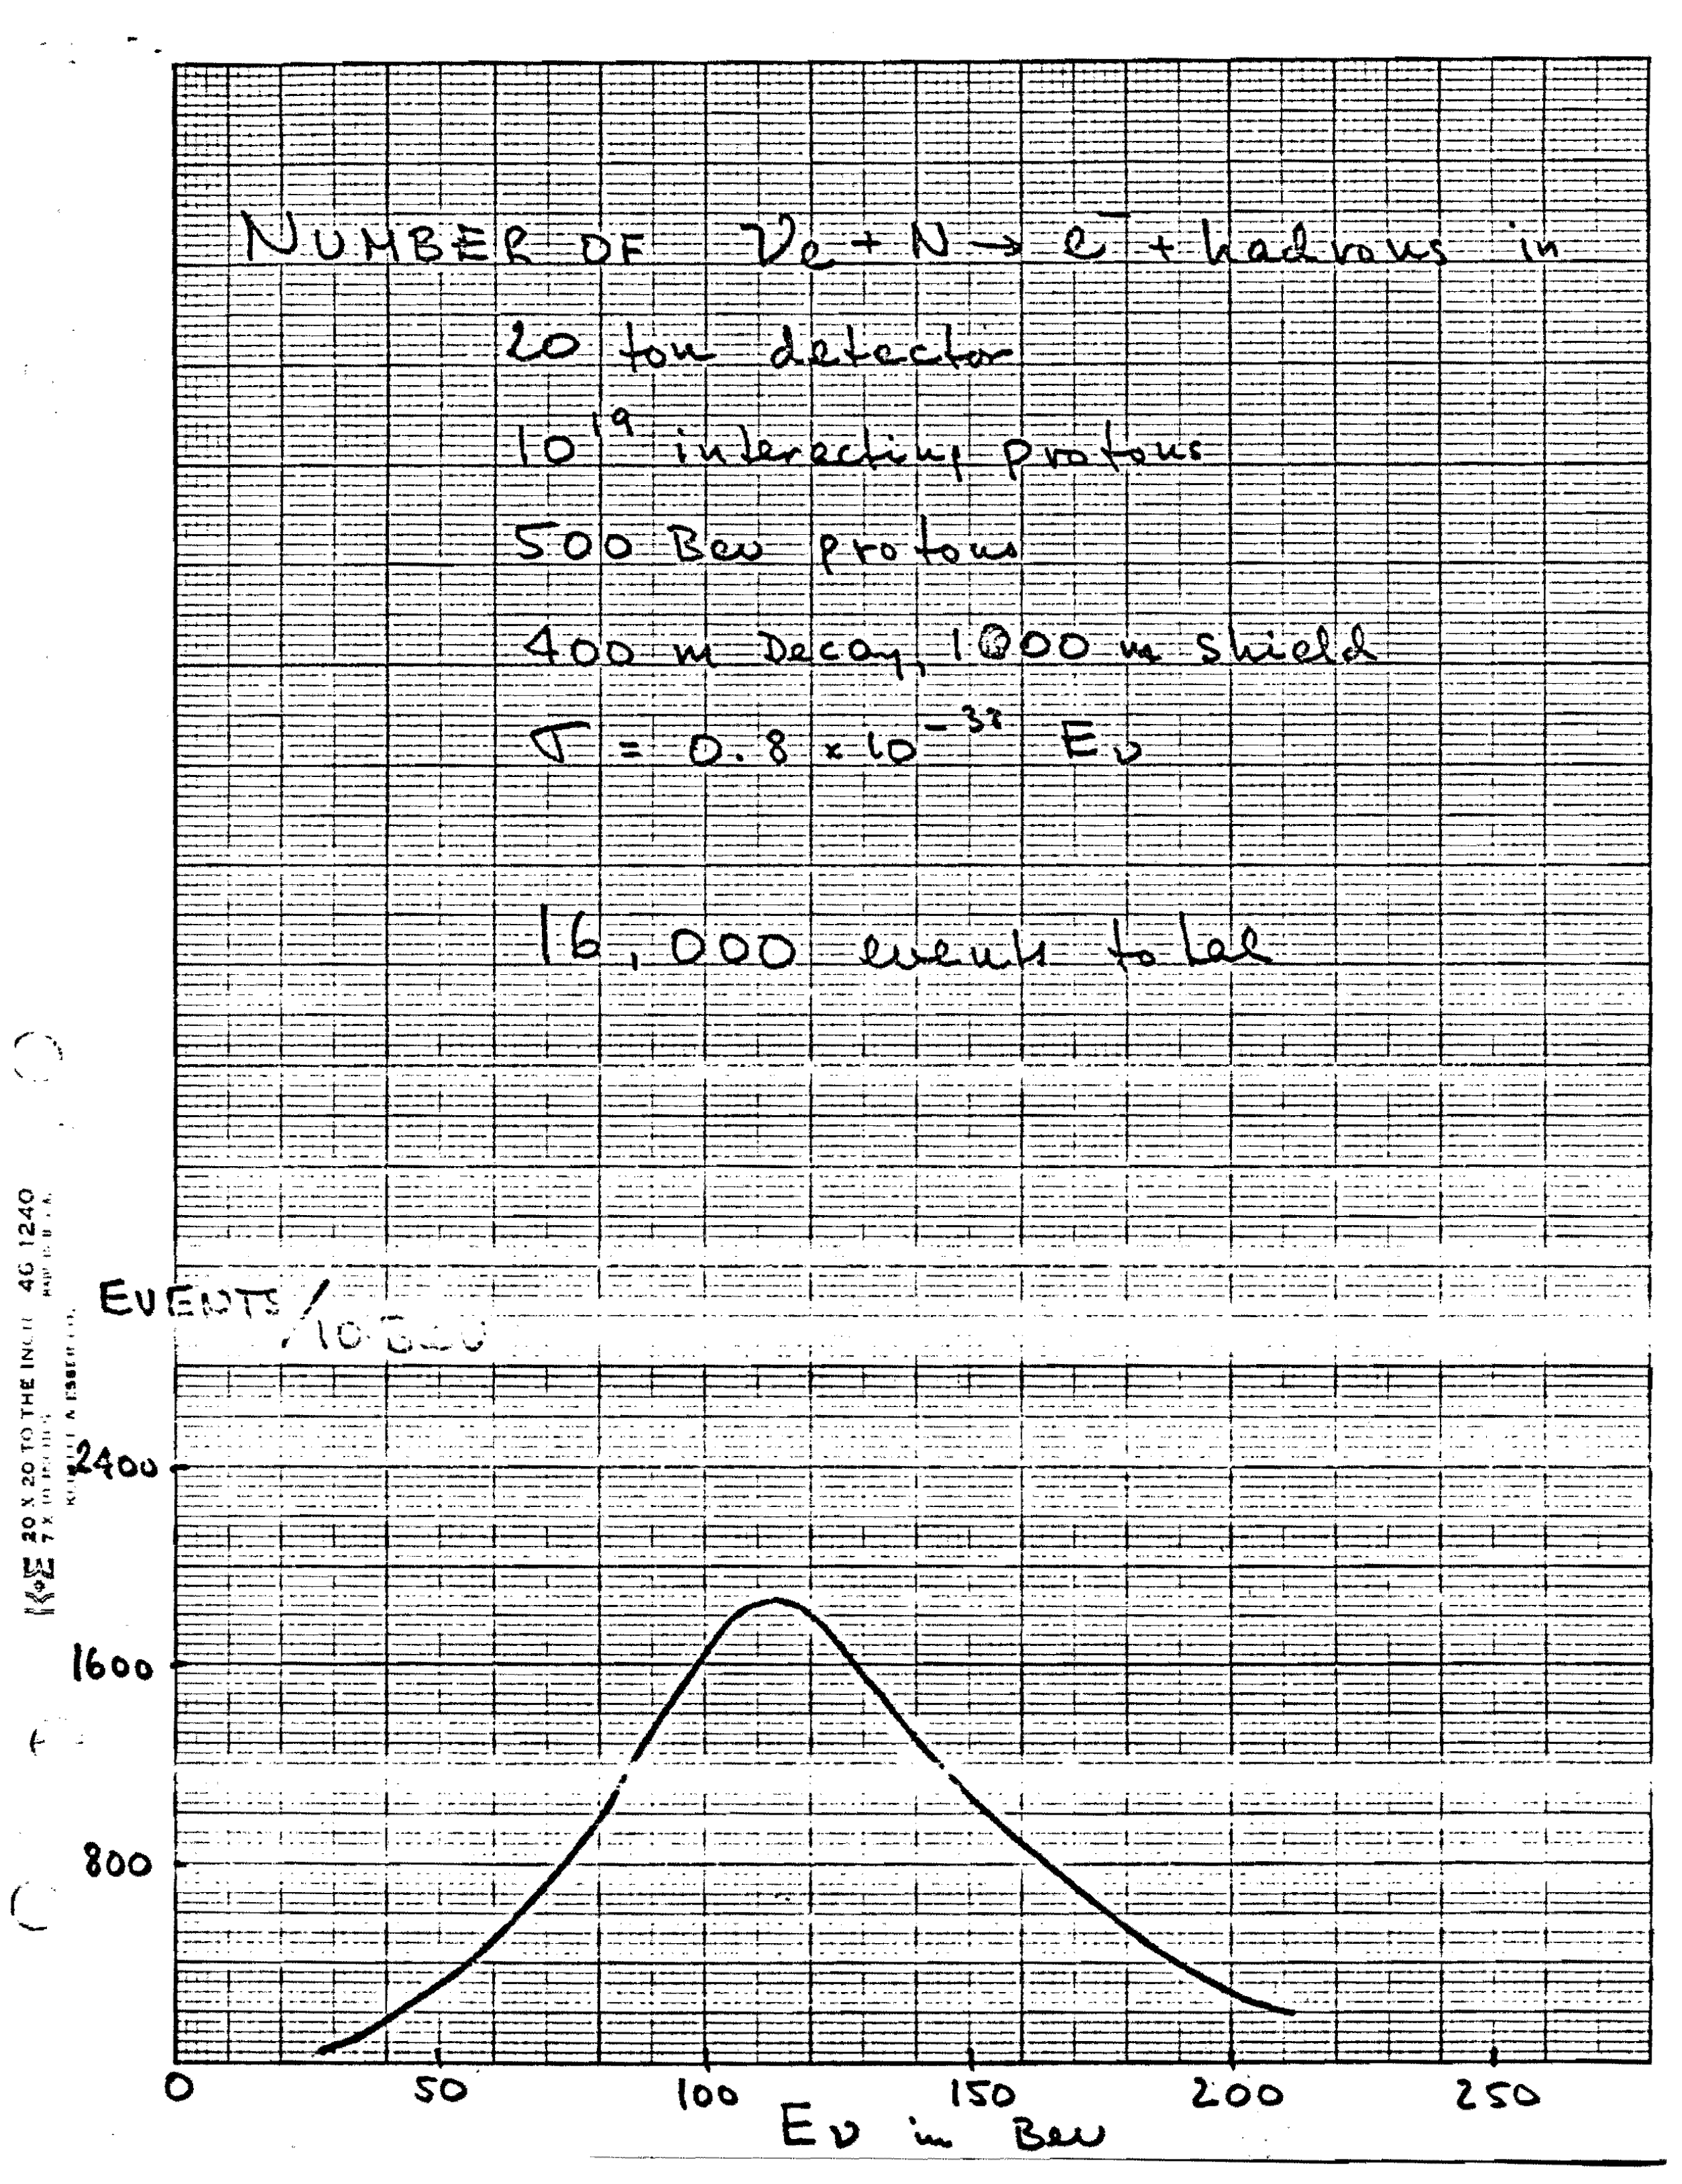 NUMBER OF νe + N → e⁻ + hadrons in
20 ton detector
10¹⁹ interacting protons
500 Bev protons
400 m Decay, 1000 m shield
σ = 0.8 × 10⁻³⁸ Eν
16,000 events total
EVENTS/10 BeV
2400
1600
800
0 50 100 150 200 250
Eν in Bev
K+E 20 X 20 TO THE INCH 46 1240